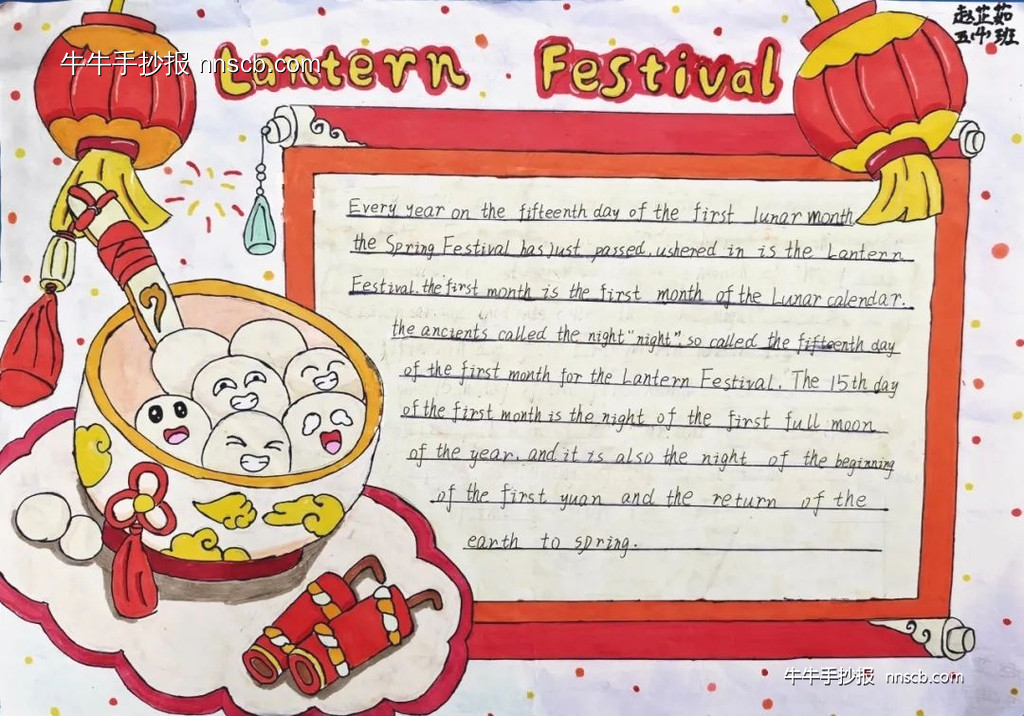 赵芷茹
五(4)班
牛牛手抄报 nnscb.com
Lantern Festival
Every year on the fifteenth day of the first lunar month
the Spring Festival has just passed, ushered in is the Lantern
Festival. the first month is the first month of the Lunar calendar.
the ancients called the night "night", so called the fifteenth day
of the first month for the Lantern Festival. The 15th day
of the first month is the night of the first full moon
of the year. and it is also the night of the beginning
of the first yuan and the return of the
earth to spring.
牛牛手抄报 nnscb.com